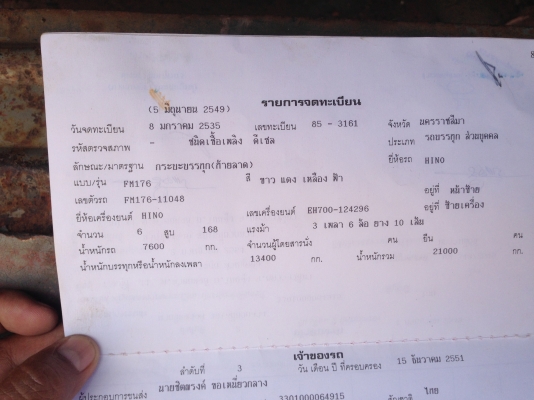 (5 มิถุนายน 2549) รายการจดทะเบียน
วันจดทะเบียน 8 มกราคม 2535 เลขทะเบียน 85 - 3161 จังหวัด นครราชสีมา
รหัสตรวจสภาพ - ชนิดเชื้อเพลิง ดีเซล ประเภท รถบรรทุก ส่วนบุคคล
ลักษณะ/มาตรฐาน กระบะบรรทุก(ท้ายลาด) ยี่ห้อรถ HINO
แบบ/รุ่น FM176 สี ขาว แดง เหลือง ฟ้า
เลขตัวรถ FM176-11048 อยู่ที่ หน้าซ้าย
ยี่ห้อเครื่องยนต์ HINO เลขเครื่องยนต์ EH700-124296 อยู่ที่ ซ้ายเครื่อง
จำนวน 6 สูบ 168 แรงม้า 3 เพลา 6 ล้อ ยาง 10 เส้น
น้ำหนักรถ 7600 กก. จำนวนผู้โดยสารนั่ง คน ยืน คน
น้ำหนักบรรทุกหรือน้ำหนักลงเพลา 13400 กก. น้ำหนักรวม 21000 กก.
เจ้าของรถ
ลำดับที่ 3 วัน เดือน ปี ที่ครอบครอง 15 ธันวาคม 2551
ผู้ประกอบการขนส่ง 3301000064915 ไทย